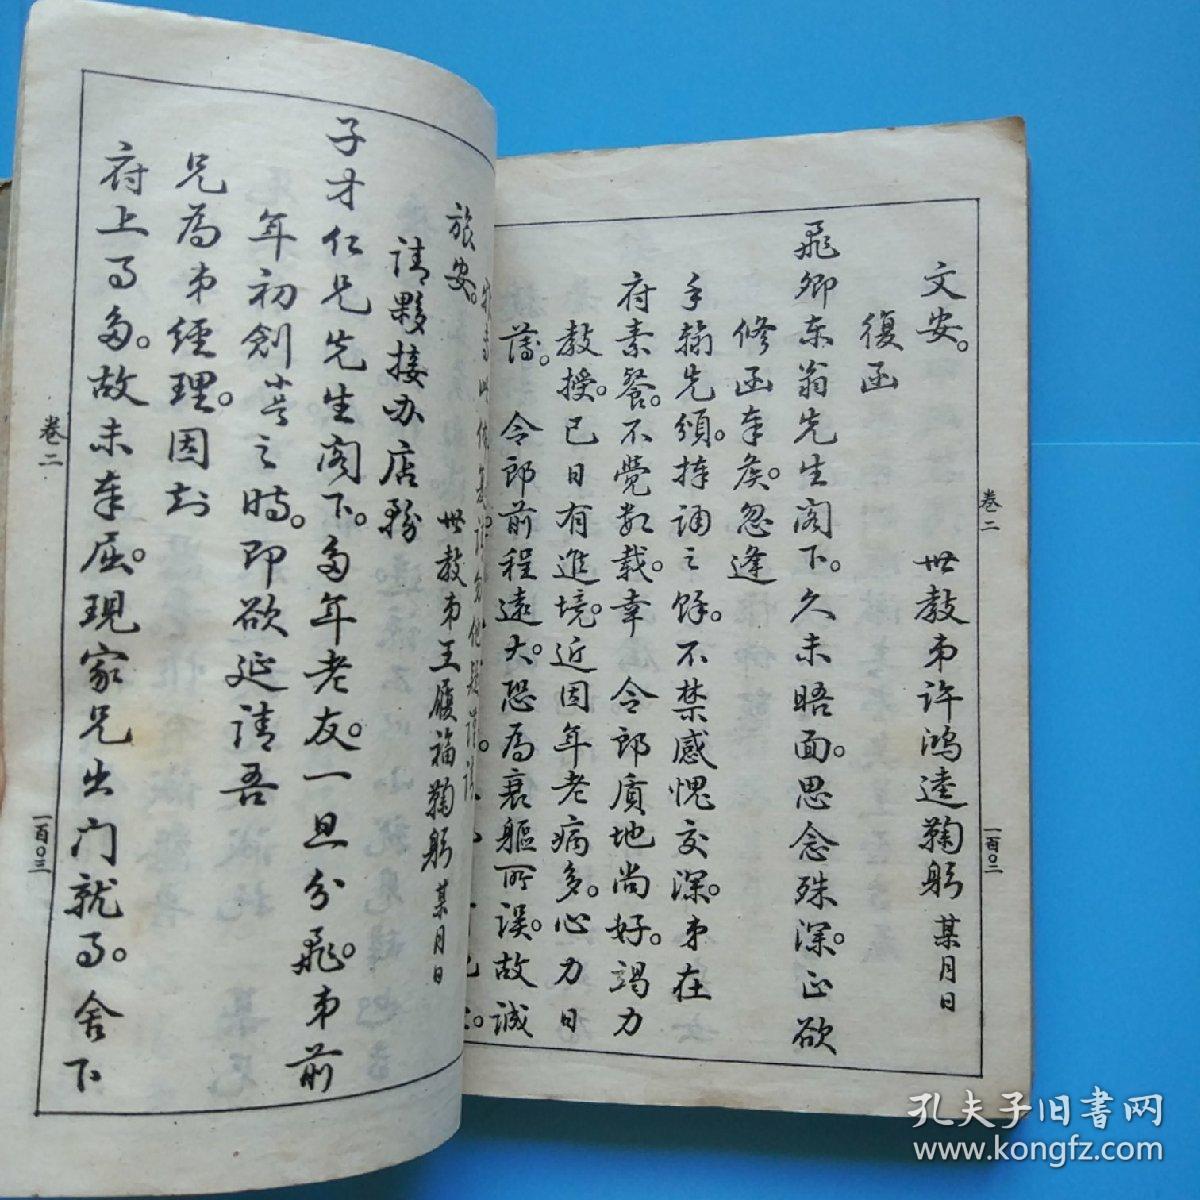 文安。
世教弟许鴻逵鞠躬 某月日
復函
飛卿东翁先生阁下。久未晤面。思念殊深。正欲
修函奉候。忽逢
手翰先頒。捧诵之餘。不禁感愧交深。弟在
府素餐。不覺数载。幸 令郎质地尚好。竭力
教授。已日有進境。近因年老病多。心力日
薄。 令郎前程遠大。恐為衰軀所误。故诚
旅安。
世教弟王履福鞠躬 某月日
请夥接办店務
子才仁兄先生阁下。多年老友。一旦分飛。弟前
年初創小号之時。即欲延请吾
兄為弟經理。因知
府上事多。故未奉屈。現家兄出门就事。舍下
卷二
一百〇二
卷二
一百〇三
孔夫子旧書网
www.kongfz.com